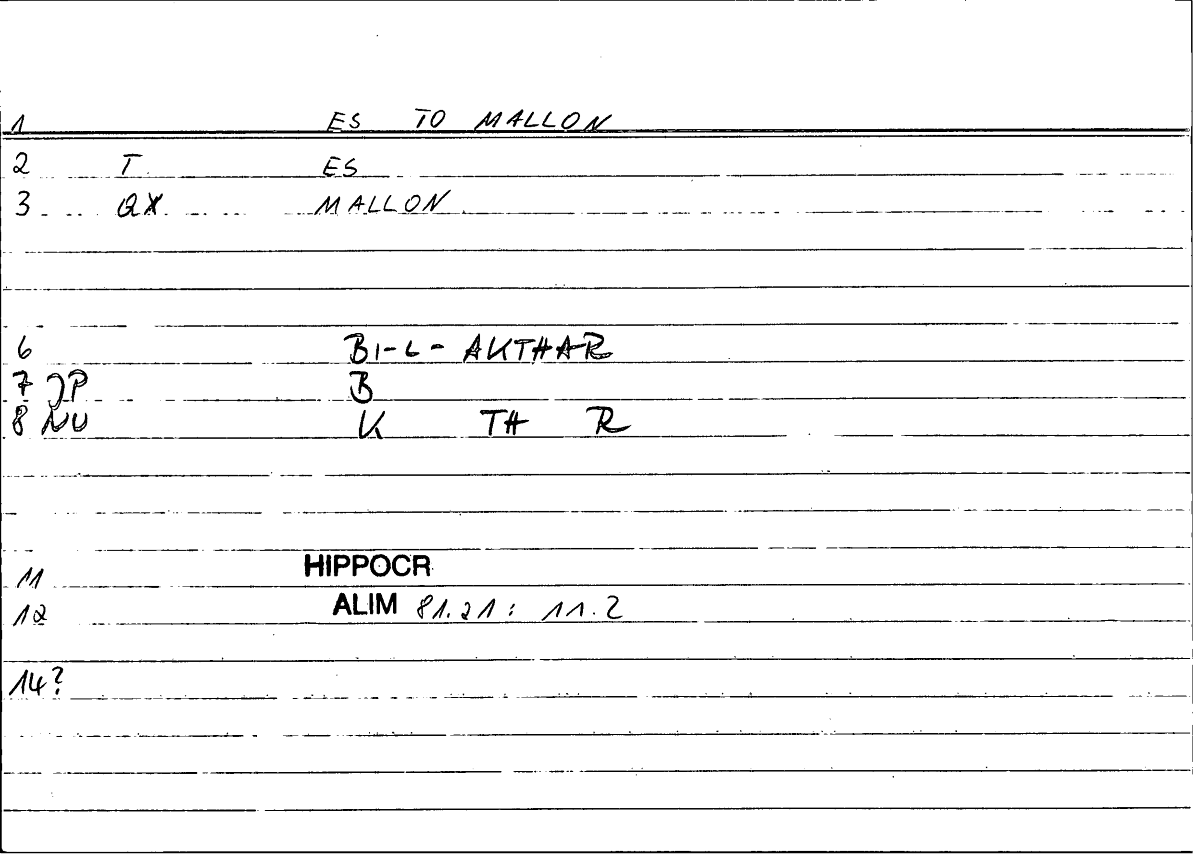 1 ES TO MALLON
2 T ES
3 QX MALLON
6 BI-L-AKTHAR
7 JP B
8 NU K TH R
11 HIPPOCR
12 ALIM 81.21: 11.2
14?